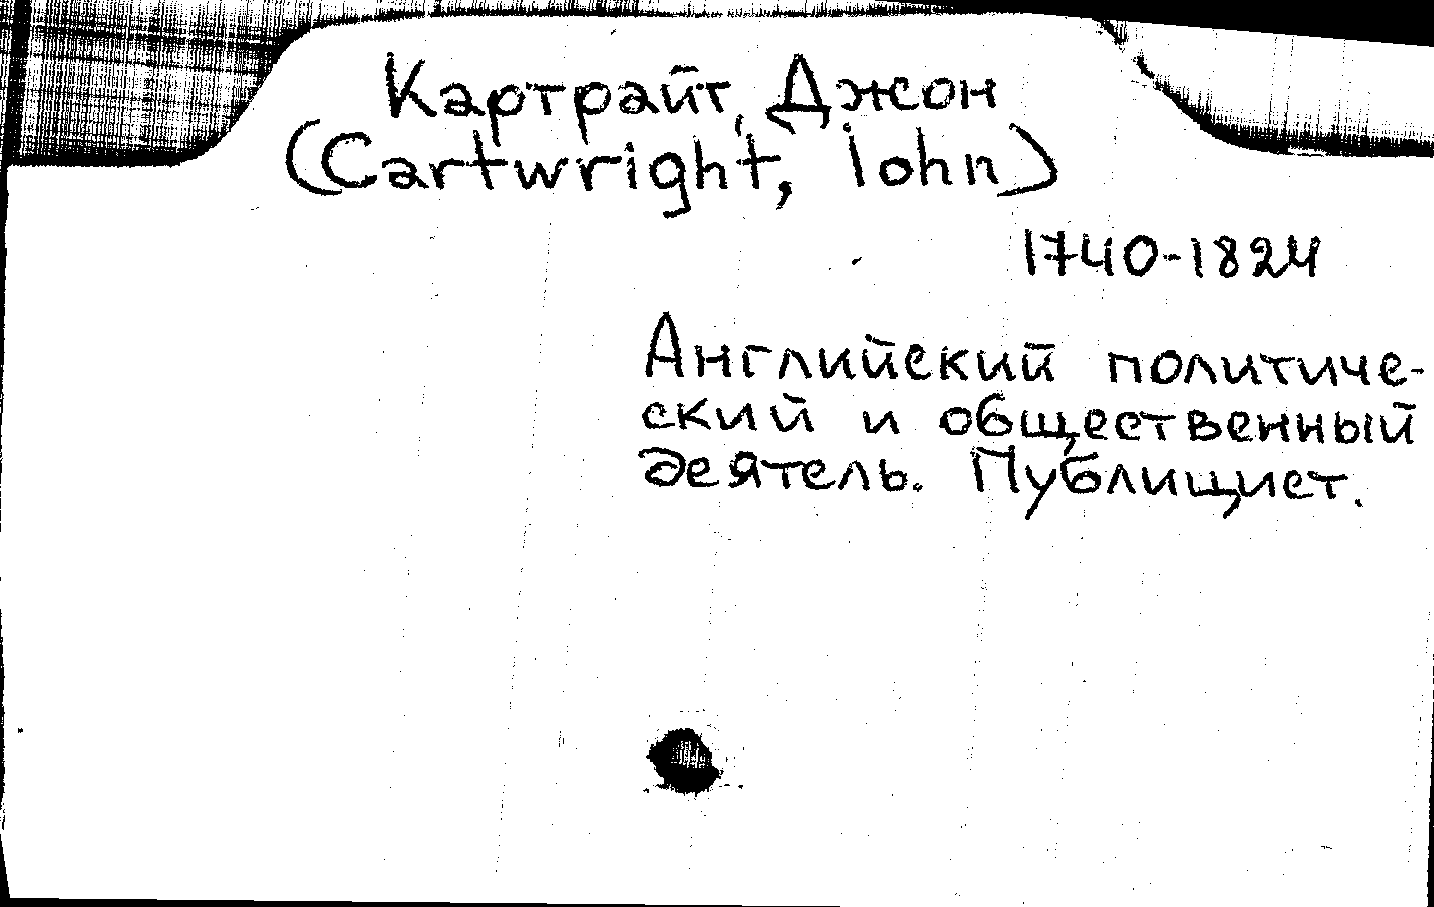 Картрайт, Джон
(Cartwright, John)
1740-1824
Английский политиче-
ский и общественный
деятель. Публицист.